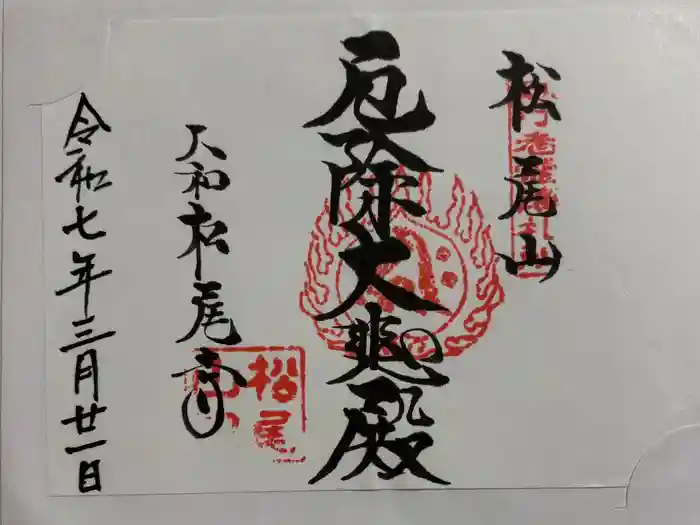 松尾山
厄除大悲殿
大和松尾寺
令和七年三月廿一日
松尾